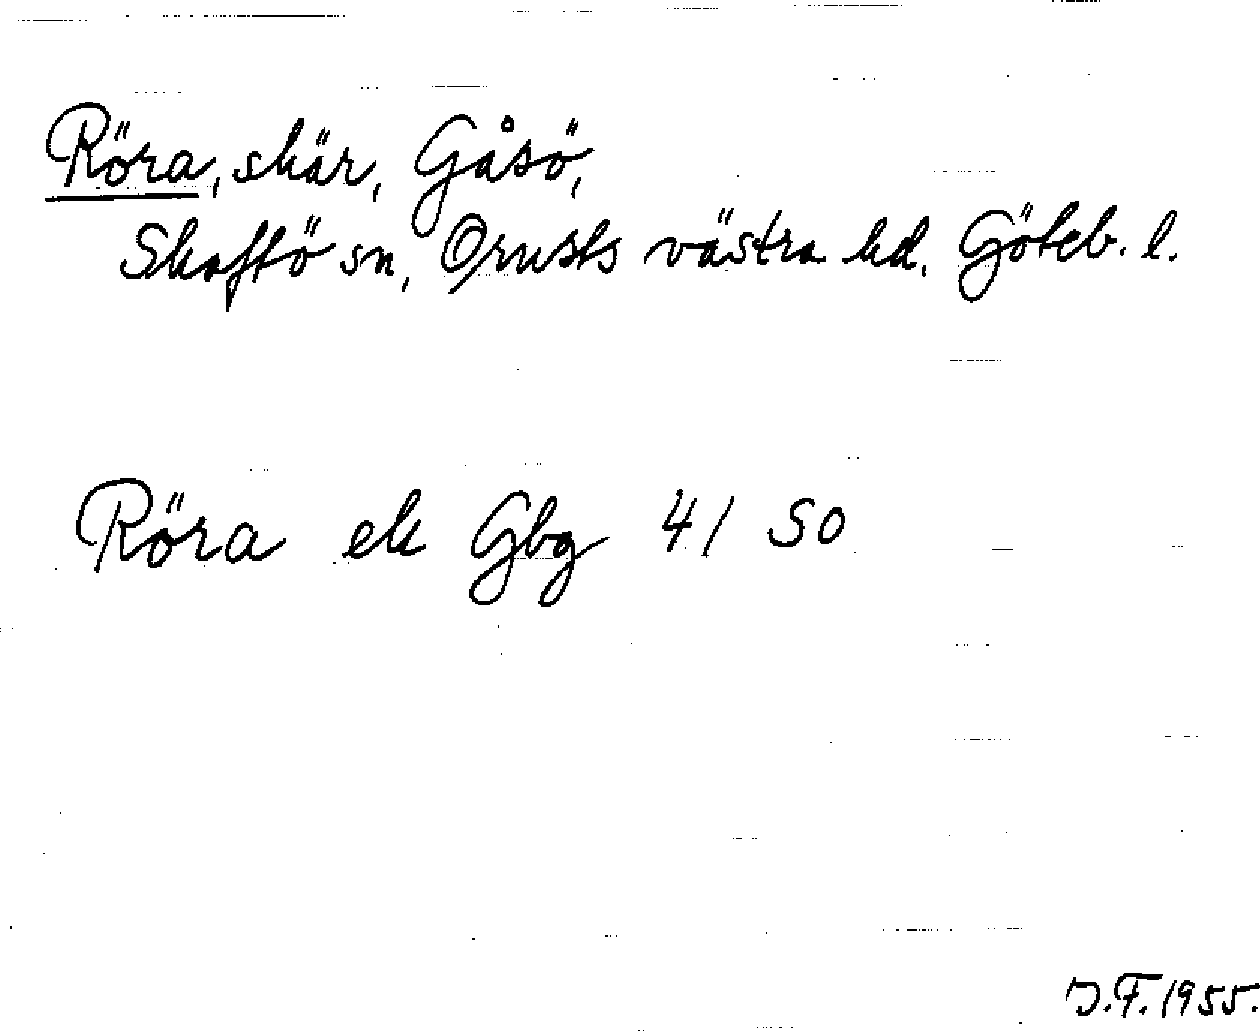 Röra, skär, Gåsö,
Skaftö sn, Orusts västra hd, Göteb. l.
Röra ek Gbg 41 SO
J.F. 1955.